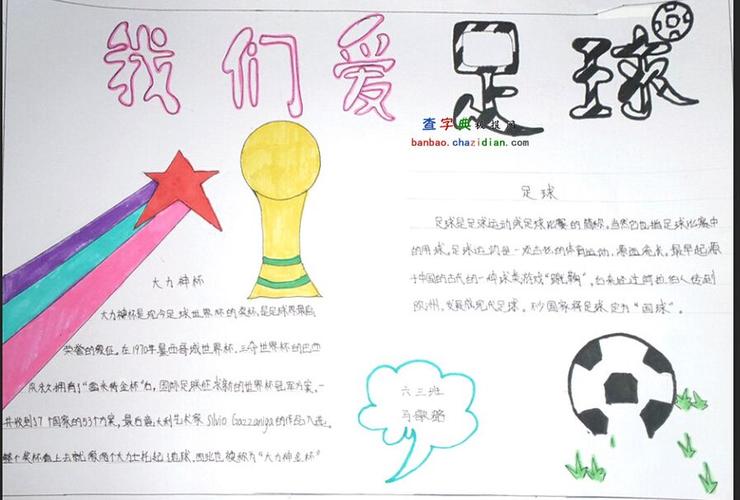 我们爱足球
查字典教提网
banbao.chazidian.com
足球
足球是足球运动或足球比赛的简称,当然它也指足球比赛中
的用球。足球运动是一项古老的体育运动,源远流长。最早起源
于中国的古代的一种球类游戏“蹴鞠”,后来经过阿拉伯人传到
欧洲,发展成现代足球。不少国家将足球定为“国球”。
大力神杯
大力神杯是现今足球世界杯的奖杯,是足球界最高
荣誉的象征。在1970年墨西哥城世界杯,三夺世界杯的巴西
永久拥有了“雷米特金杯”后,国际足联征求新的世界杯冠军方案,一
共收到17个国家的53个方案,最后意大利艺术家Silvio Gazzaniga的作品入选。
整个奖杯看上去就像两个大力士托起了地球,因此也被称为“大力神金杯”
六三班